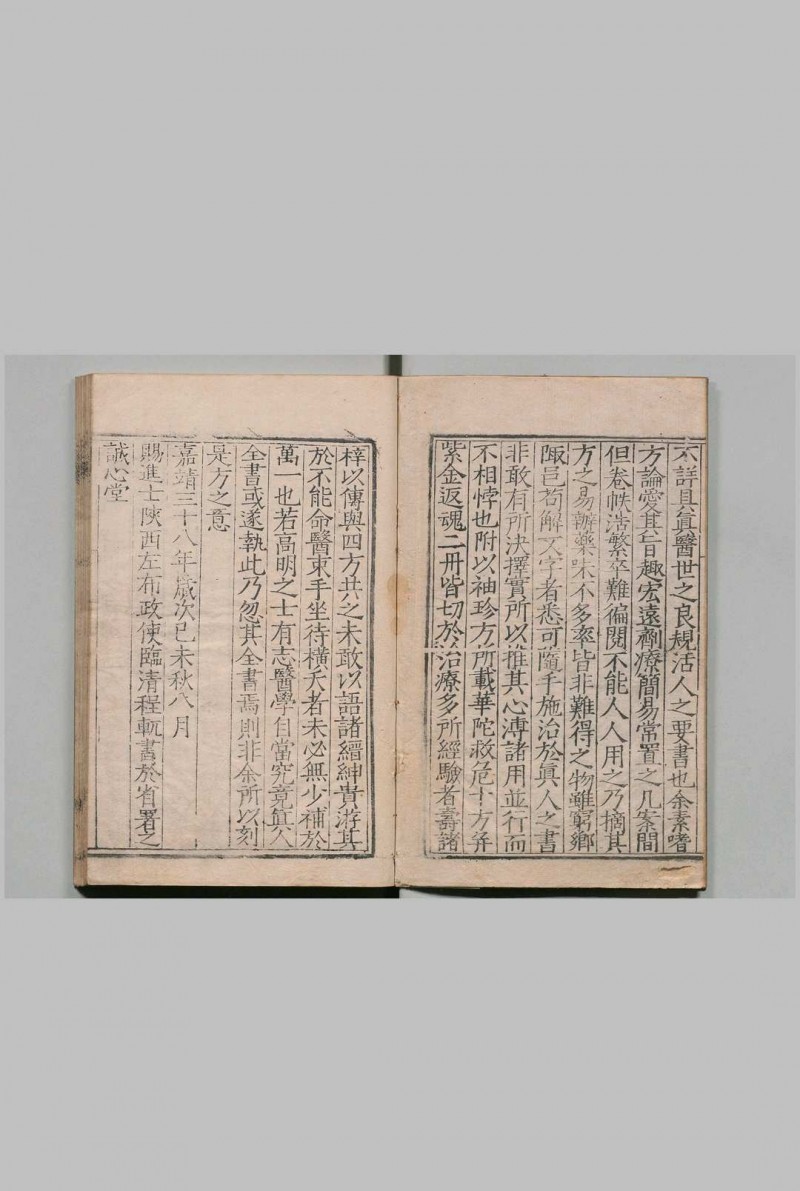 不詳且眞醫世之良規活人之要書也余素嗜
方論愛其旨趣宏遠劑療簡易常置之几案間
但卷帙浩繁卒難徧閱不能人人用之乃摘其
方之易辦藥味不多率皆非難得之物雖窮鄉
陬邑苟解文字者悉可隨手施治於眞人之書
非敢有所決擇實所以推其心溥諸用並行而
不相悖也附以袖珍方所載華陀救危十方并
紫金返魂二冊皆切於治療多所經驗者壽諸
梓以傳與四方共之未敢以語諸縉紳貴游其
於不能命醫束手坐待橫夭者未必無少補於
萬一也若高明之士有志醫學自當究竟眞人
全書或遂執此乃忽其全書焉則非余所以刻
是方之意
嘉靖三十八年歲次己未秋八月
賜進士陝西左布政使臨清程軏書於省署之
誠心堂